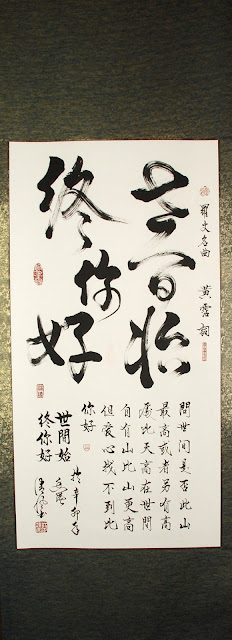 羅文名曲 黃霑詞
世間始
終你好
問世間是否此山
最高或者另有高
處比天高在世間
自有山比山更高
但愛心找不到比
你好
世間始
終你好
於辛卯年